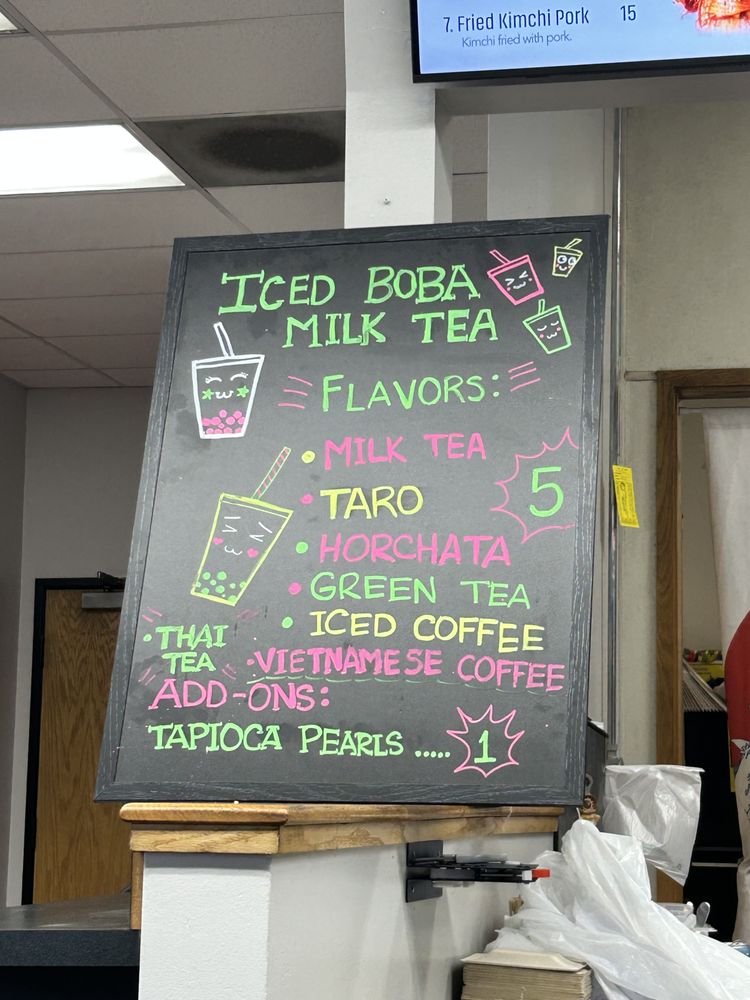 7. Fried Kimchi Pork 15
Kimchi fried with pork.
ICED BOBA
MILK TEA
FLAVORS:
• MILK TEA
5
• TARO
• HORCHATA
• GREEN TEA
• ICED COFFEE
• THAI
TEA
• VIETNAMESE COFFEE
ADD-ONS:
TAPIOCA PEARLS ..... 1